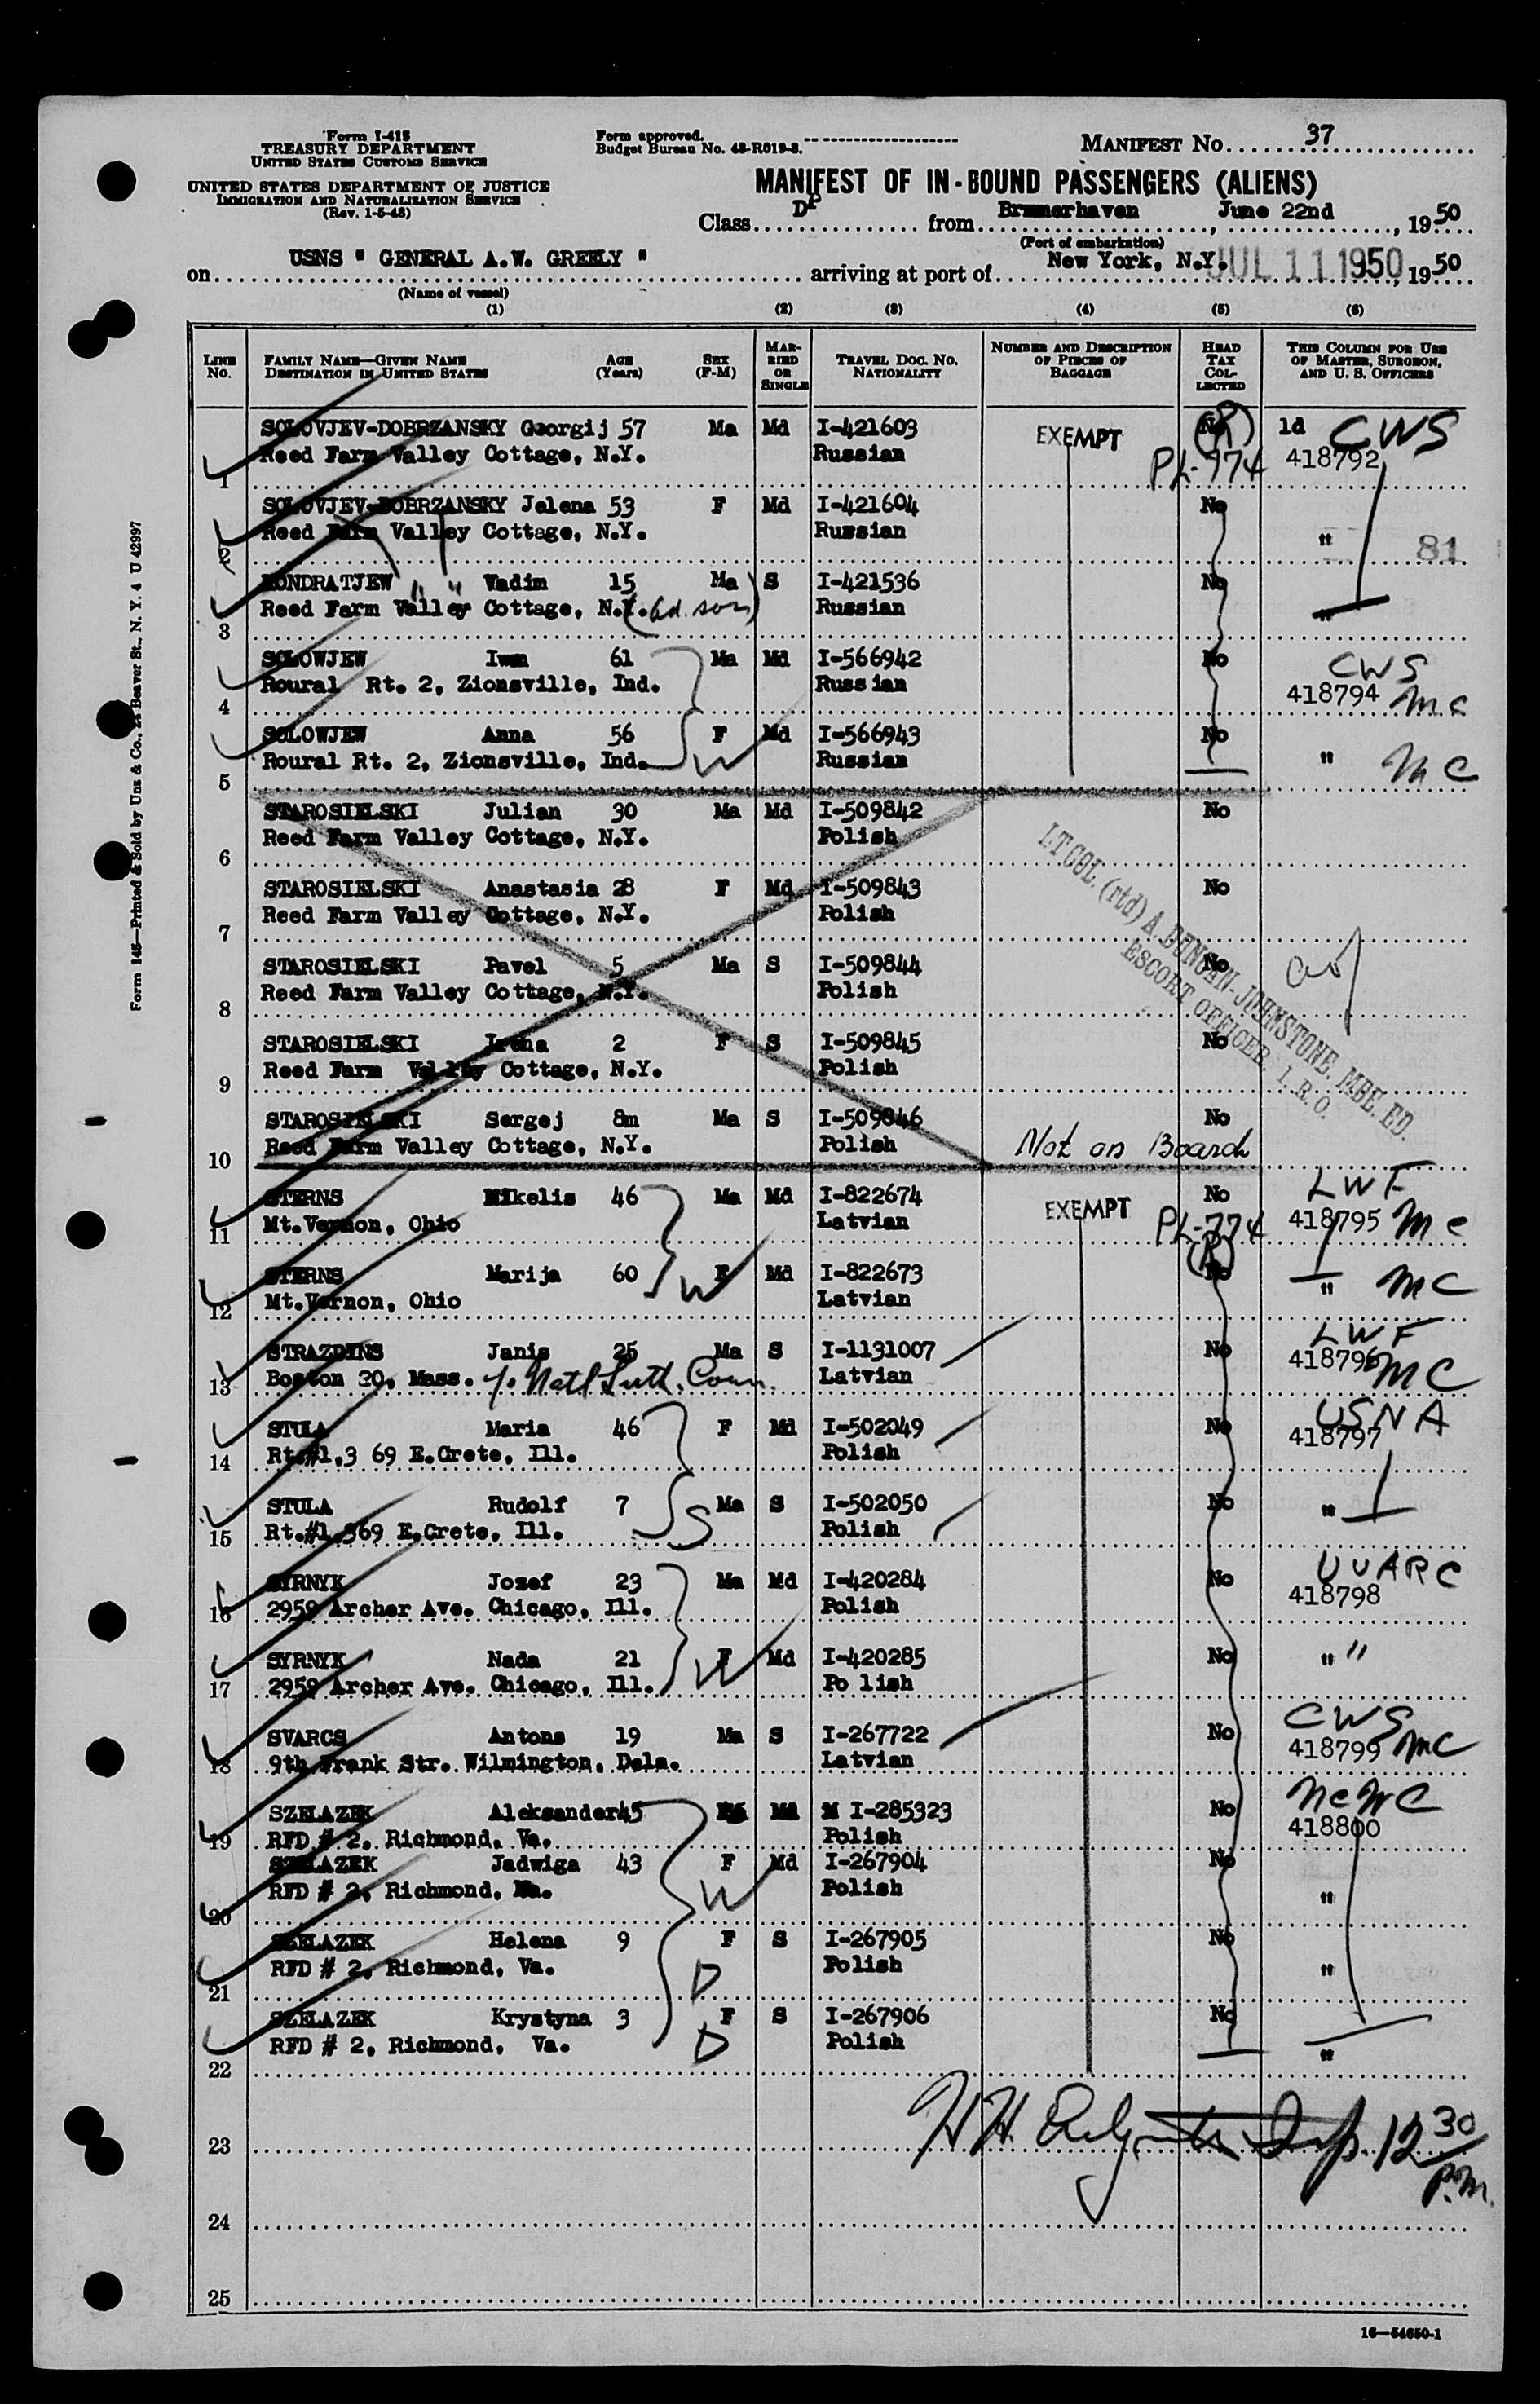 Form I-415
TREASURY DEPARTMENT
UNITED STATES CUSTOMS SERVICE
UNITED STATES DEPARTMENT OF JUSTICE
IMMIGRATION AND NATURALIZATION SERVICE
(Rev. 1-5-48)
Form approved.
Budget Bureau No. 43-R019-3.
MANIFEST No. 37
MANIFEST OF IN-BOUND PASSENGERS (ALIENS)
Class DP from Bremerhaven, June 22nd, 1950
(Port of embarkation)
on USNS " GENERAL A.W. GREELY " arriving at port of New York, N.Y. JUL 11 1950, 1950
(Name of vessel)
(1) (2) (3) (4) (5) (6)
LINE No. FAMILY NAME—GIVEN NAME DESTINATION IN UNITED STATES AGE (Years) SEX (F-M) MARRIED OR SINGLE TRAVEL DOC. NO. NATIONALITY NUMBER AND DESCRIPTION OF PIECES OF BAGGAGE HEAD TAX COLLECTED THIS COLUMN FOR USE OF MASTER, SURGEON, AND U. S. OFFICERS
SOLOVJEV-DOBRZANSKY Georgij 57 Ma Md I-421603 EXEMPT No (R) 1d CWS
1 Reed Farm Valley Cottage, N.Y. Russian PL-774 418792
SOLOVJEV-DOBRZANSKY Jelena 53 F Md I-421604 No
2 Reed Farm Valley Cottage, N.Y. Russian " 81
KONDRATJEW " " Vadim 15 Ma S I-421536 No
3 Reed Farm Valley Cottage, N.Y. (ad. son) Russian "
SOLOWJEW Iwan 61 Ma Md I-566942 No CWS
4 Roural Rt. 2, Zionsville, Ind. Russian 418794 MC
SOLOWJEW Anna 56 F Md I-566943 No
5 Roural Rt. 2, Zionsville, Ind. W Russian " MC
STAROSIELSKI Julian 30 Ma Md I-509842 No
6 Reed Farm Valley Cottage, N.Y. Polish
STAROSIELSKI Anastasia 28 F Md I-509843 No
7 Reed Farm Valley Cottage, N.Y. Polish
STAROSIELSKI Pavel 5 Ma S I-509844 No
8 Reed Farm Valley Cottage, N.Y. Polish
STAROSIELSKI Irena 2 F S I-509845 No
9 Reed Farm Valley Cottage, N.Y. Polish
STAROSIELSKI Sergej 8m Ma S I-509846 No
10 Reed Farm Valley Cottage, N.Y. Polish Not on Board
LTCOL. (rtd) A. DUNCAN-JOHNSTONE, MBE. ED.
ESCORT OFFICER, I.R.O.
STERNS Mikelis 46 Ma Md I-822674 EXEMPT No LWF
11 Mt.Vernon, Ohio Latvian PL-774 418795 MC
STERNS Marija 60 F Md I-822673 (R) No
12 Mt.Vernon, Ohio W Latvian " MC
STRAZDINS Janis 25 Ma S I-1131007 No LWF
13 Boston 20, Mass. c/o Natl Luth. Coun. Latvian 418796 MC
STULA Maria 46 F Md I-502049 No USNA
14 Rt.#1,3 69 E.Crete, Ill. Polish 418797
STULA Rudolf 7 Ma S I-502050 No
15 Rt.#1,369 E.Crete, Ill. S Polish "
SYRNYK Jozef 23 Ma Md I-420284 No UUARC
16 2959 Archer Ave. Chicago, Ill. Polish 418798
SYRNYK Nada 21 F Md I-420285 No " "
17 2959 Archer Ave. Chicago, Ill. W Po lish
SVARCS Antons 19 Ma S I-267722 No CWS
18 9th Frank Str. Wilmington, Dela. Latvian 418799 MC
SZELAZEK Aleksander 45 Md M I-285323 No NCWC
19 RFD # 2, Richmond, Va. Polish 418800
SZELAZEK Jadwiga 43 F Md I-267904 No
20 RFD # 2, Richmond, Va. W Polish "
SZELAZEK Helena 9 F S I-267905 No
21 RFD # 2, Richmond, Va. D Polish "
SZELAZEK Krystyna 3 F S I-267906 No
22 RFD # 2, Richmond, Va. D Polish "
23 H.H. Insp. 12 30 P.M.
24
25
16—54650-1
Form 145—Printed & Sold by Unz & Co., 24 Beaver St., N. Y. 4 U 42997